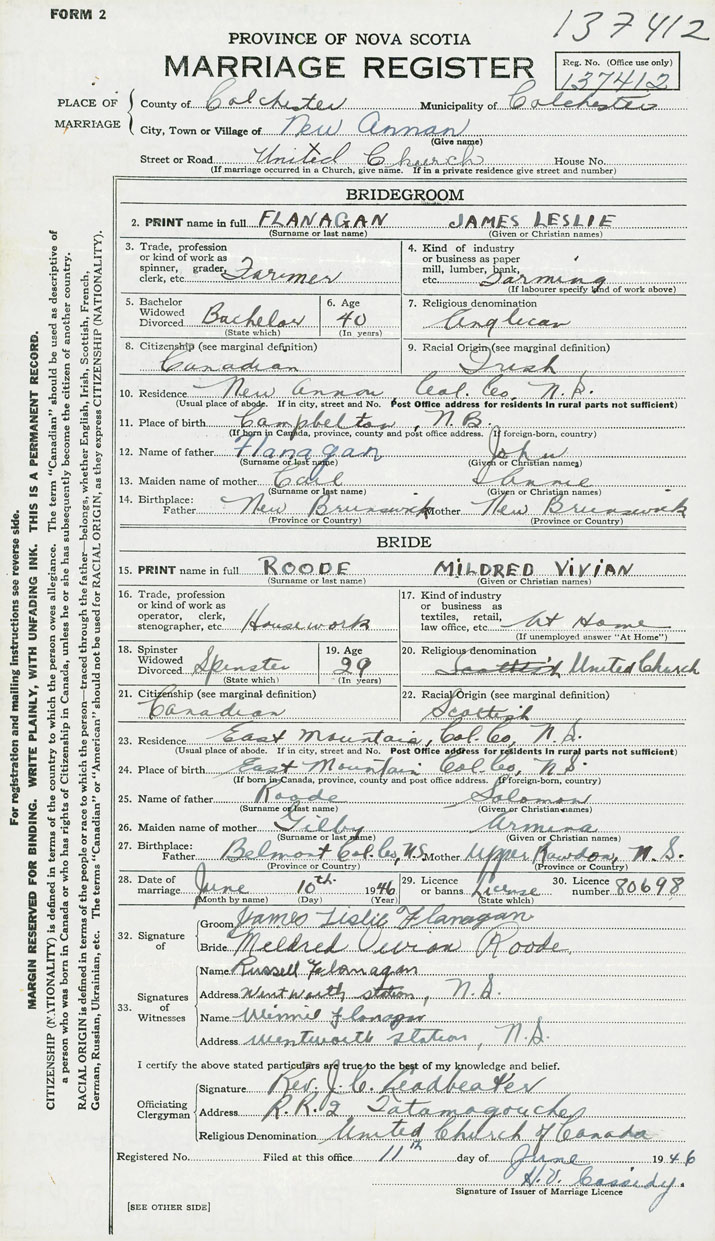 FORM 2
137412
PROVINCE OF NOVA SCOTIA
MARRIAGE REGISTER
Reg. No. (Office use only)
137412
PLACE OF MARRIAGE
County of Colchester Municipality of Colchester
City, Town or Village of New Annan
(Give name)
Street or Road United Church House No.
(If marriage occurred in a Church, give name. If in a private residence give street and number)
BRIDEGROOM
2. PRINT name in full FLANAGAN JAMES LESLIE
(Surname or last name) (Given or Christian names)
3. Trade, profession or kind of work as spinner, grader, clerk, etc. Farmer
4. Kind of industry or business as paper mill, lumber, bank, etc. Farming
(If labourer specify kind of work above)
5. Bachelor Widowed Divorced Bachelor
(State which)
6. Age 40
(In years)
7. Religious denomination
Anglican
8. Citizenship (see marginal definition)
Canadian
9. Racial Origin (see marginal definition)
Irish
10. Residence New Annan Col. Co. N.S.
(Usual place of abode. If in city, street and No. Post Office address for residents in rural parts not sufficient)
11. Place of birth Campbelton, N.B.
(If born in Canada, province, county and post office address. If foreign-born, country)
12. Name of father Flanagan John
(Surname or last name) (Given or Christian names)
13. Maiden name of mother
(Surname or last name) (Given or Christian names)
14. Birthplace: Father New Brunswick Mother New Brunswick
(Province or Country) (Province or Country)
BRIDE
15. PRINT name in full ROODE MILDRED VIVIAN
(Surname or last name) (Given or Christian names)
16. Trade, profession or kind of work as operator, clerk, stenographer, etc. Housework
17. Kind of industry or business as textiles, retail, law office, etc. At Home
(If unemployed answer "At Home")
18. Spinster Widowed Divorced Spinster
(State which)
19. Age 29
(In years)
20. Religious denomination
Scottish United Church
21. Citizenship (see marginal definition)
Canadian
22. Racial Origin (see marginal definition)
Scottish
23. Residence East Mountain, Col. Co, N.S.
(Usual place of abode. If in city, street and No. Post Office address for residents in rural parts not sufficient)
24. Place of birth East Mountain Col. Co, N.S.
(If born in Canada, province, county and post office address. If foreign-born, country)
25. Name of father Roode Solomon
(Surname or last name) (Given or Christian names)
26. Maiden name of mother Gilby Armina
(Surname or last name) (Given or Christian names)
27. Birthplace: Father Belmont Col. Co, N.S. Mother Upper Rawdon, N.S.
(Province or Country) (Province or Country)
28. Date of marriage June 10th 1946
(Month by name) (Day) (Year)
29. Licence or banns License
(State which)
30. Licence number 80698
32. Signature of
Groom James Leslie Flanagan
Bride Meldred Vivian Roode
33. Signatures of Witnesses
Name Russell Flanagan
Address Wentworth station, N.S.
Name Winnie Flanagan
Address Wentworth station, N.S.
I certify the above stated particulars are true to the best of my knowledge and belief.
Officiating Clergyman
Signature Rev. J. C. Leadbeater
Address R.R. 2 Tatamagouche
Religious Denomination United Church of Canada
Registered No. Filed at this office 11th day of June 1946
H.V. Cassidy.
Signature of Issuer of Marriage Licence
[SEE OTHER SIDE]
For registration and mailing instructions see reverse side.
MARGIN RESERVED FOR BINDING. WRITE PLAINLY, WITH UNFADING INK. THIS IS A PERMANENT RECORD.
CITIZENSHIP (NATIONALITY) is defined in terms of the country to which the person owes allegiance. The term "Canadian" should be used as descriptive of
a person who was born in Canada or who has rights of Citizenship in Canada, unless he or she has subsequently become the citizen of another country.
RACIAL ORIGIN is defined in terms of the people or race to which the person—traced through the father—belongs, whether English, Irish, Scottish, French,
German, Russian, Ukrainian, etc. The terms "Canadian" or "American" should not be used for RACIAL ORIGIN, as they express CITIZENSHIP (NATIONALITY).